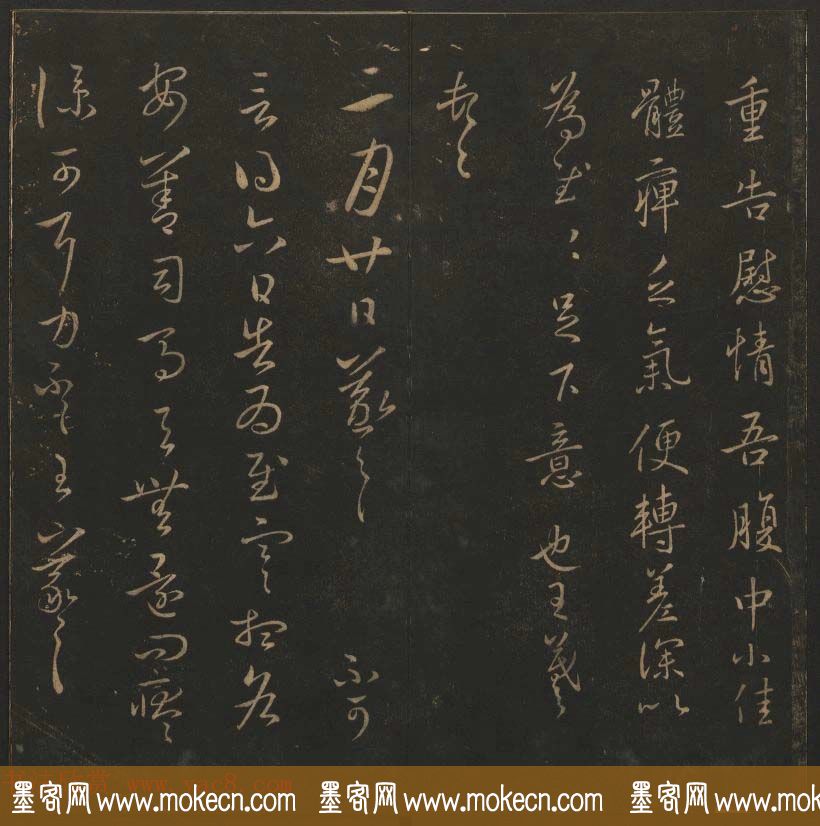 重告慰情吾腹中小佳
體痺乏氣便轉差深以
為慰〻足下意也王羲
二月廿日羲之 不可
言得六日告為慰 想各
安善司馬 無還問
深可耳力不一一王羲之
www.yac8.com
墨客网 www.mokecn.com 墨客网 www.mokecn.com 墨客网 www.mokecn.com